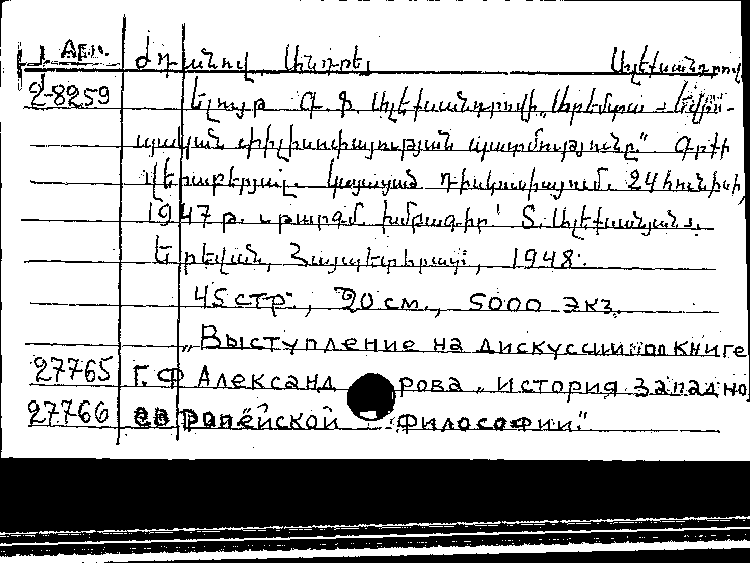 Арм. Ժդանով Անդրեյ Ալեքսանդրով
2-8259 Ելույթ Գ. Ֆ. Ալեքսանդրովի „Արևմտա-եվրո-
պական փիլիսոփայության պատմությունը“ գրքի
վերաբերյալ կայացած դիսկուսիայում 24 հունիսի,
1947 թ. թարգմ. խմբագիր՝ Ս. Ալեքսանյան
Երևան, Հայպետհրատ, 1948.
45 стр., 20 см., 5000 экз.
„Выступление на дискуссии по книге
27765 Г. Ф Александрова „история западно
27766 европейской философии."